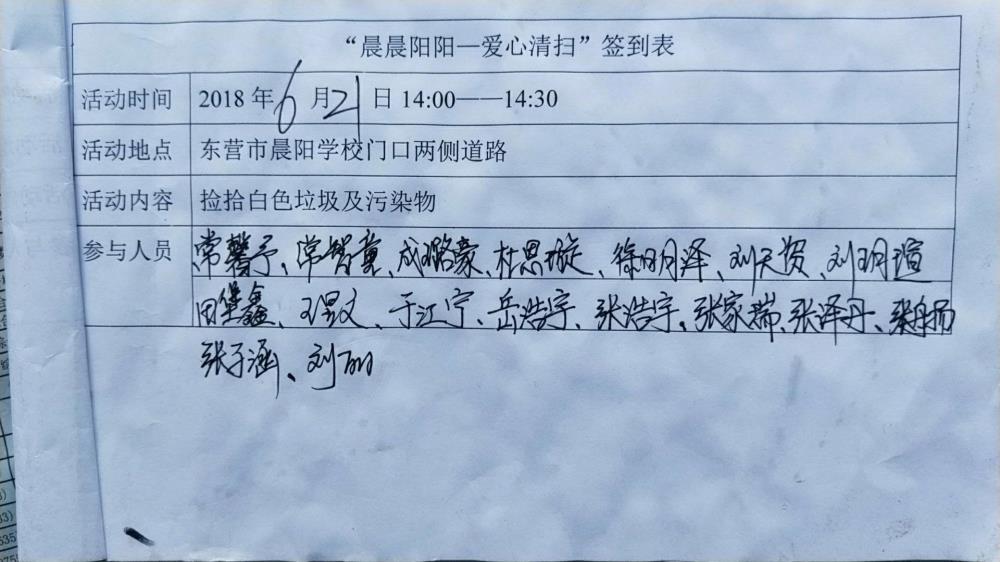 “晨晨阳阳—爱心清扫”签到表
活动时间 2018 年 6 月 21 日 14:00——14:30
活动地点 东营市晨阳学校门口两侧道路
活动内容 捡拾白色垃圾及污染物
参与人员 常馨予、常智童、成璐豪、杜思璇、徐明泽、刘天贺、刘玥瑄
田堡鑫、王昱文、于江宁、岳浩宇、张浩宇、张家瑞、张泽丹、
张子涵、刘丽